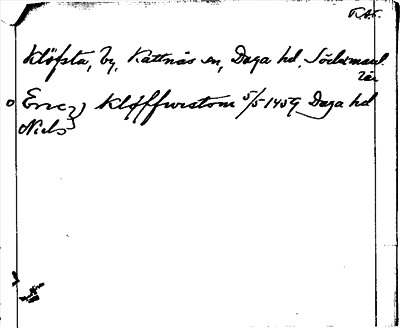 R.A.
Klöfsta, by, Kattnäs sn, Daga hd, Södermanl.
län
Eric } Kloffwestom 5/5 1459 Daga hd
Niels